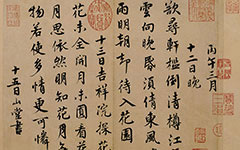 丙午三月
十二日晚
欲尋軒檻倒清樽江
雲向晚昏須倩東風
雨明朝却待入花園
十三日吉祥院探花
花未全開月未圓看花
月思依然明知花月
物若使多情更可憐
十五日山堂書